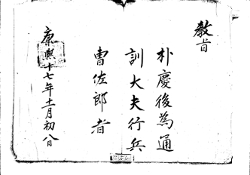 教旨
朴慶後為通
訓大夫行兵
曹佐郎者
康熙十七年十一月初八日